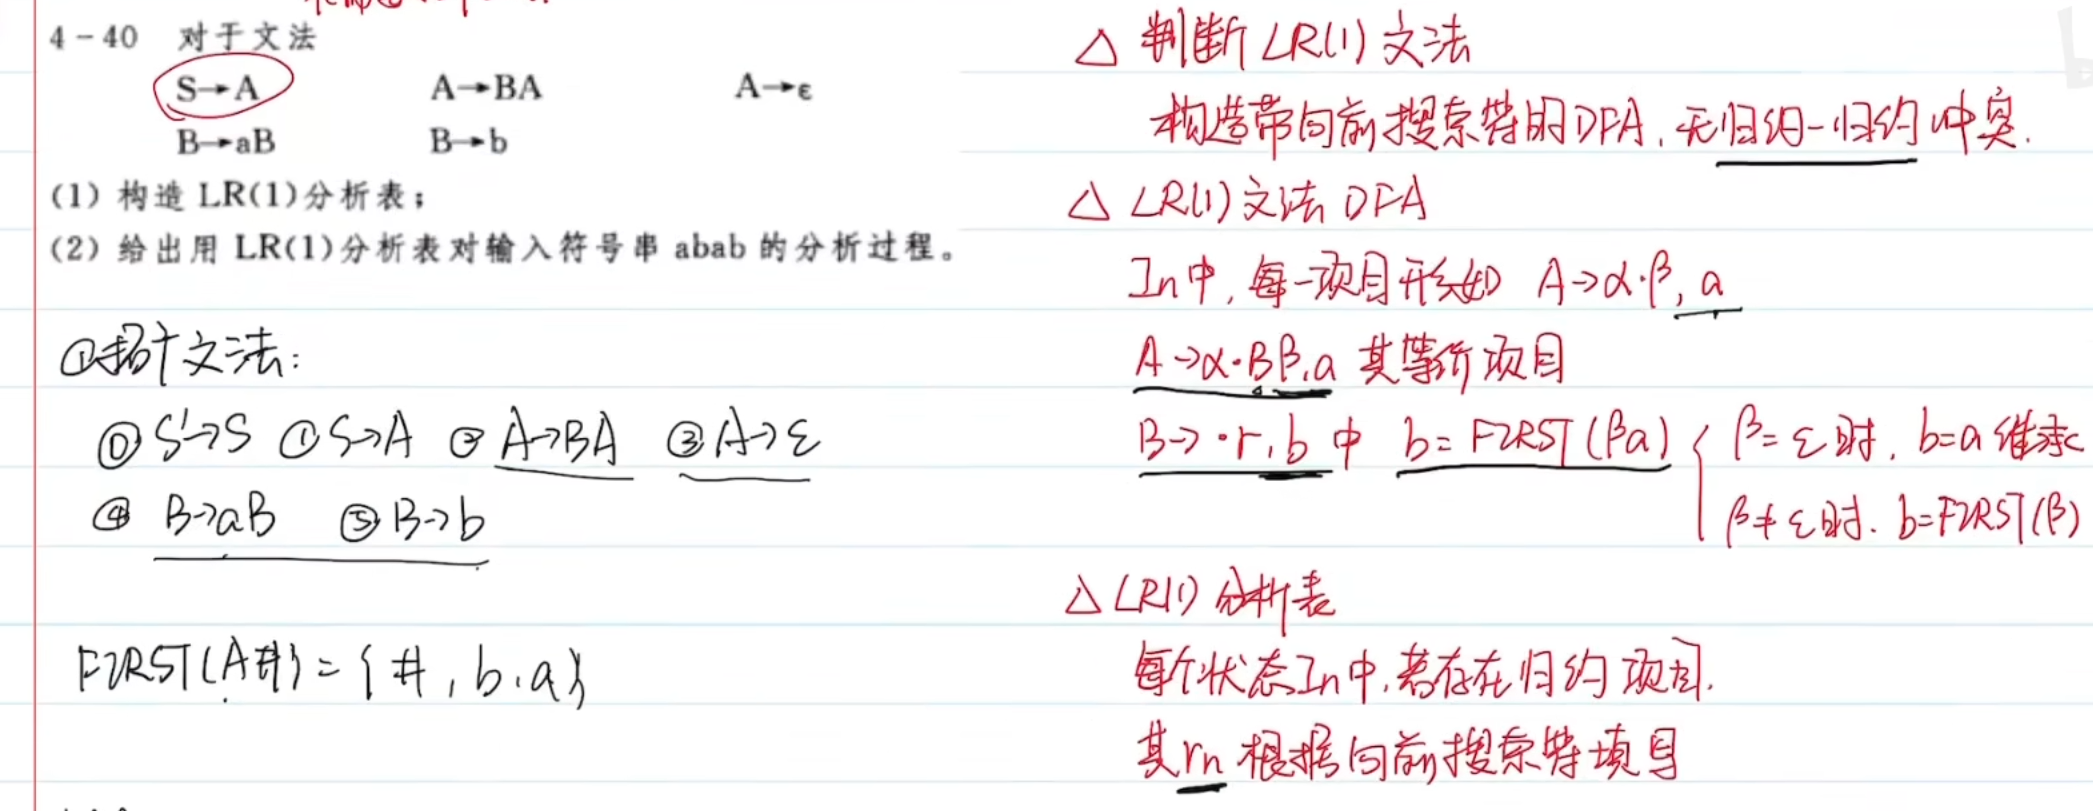 4-40 对于文法
S→A A→BA A→ε
B→aB B→b
(1) 构造 LR(1)分析表;
(2) 给出用 LR(1)分析表对输入符号串 abab 的分析过程。
①拓广文法:
⓪S'→S ①S→A ②A→BA ③A→ε
④ B→aB ⑤B→b
FIRST(A#)={#,b,a}
△ 判断 LR(1) 文法
构造带向前搜索符的DFA,无归约-归约冲突.
△ LR(1)文法 DFA
In中,每一项目形如 A→α·β,a
A→α·Bβ,a 其等价项目
B→·r,b 中 b=FIRST(βa) { β=ε时, b=a 继承
β≠ε时. b=FIRST(β)
△ LR(1) 分析表
每个状态In中,若存在归约项目.
其rn 根据向前搜索符填写